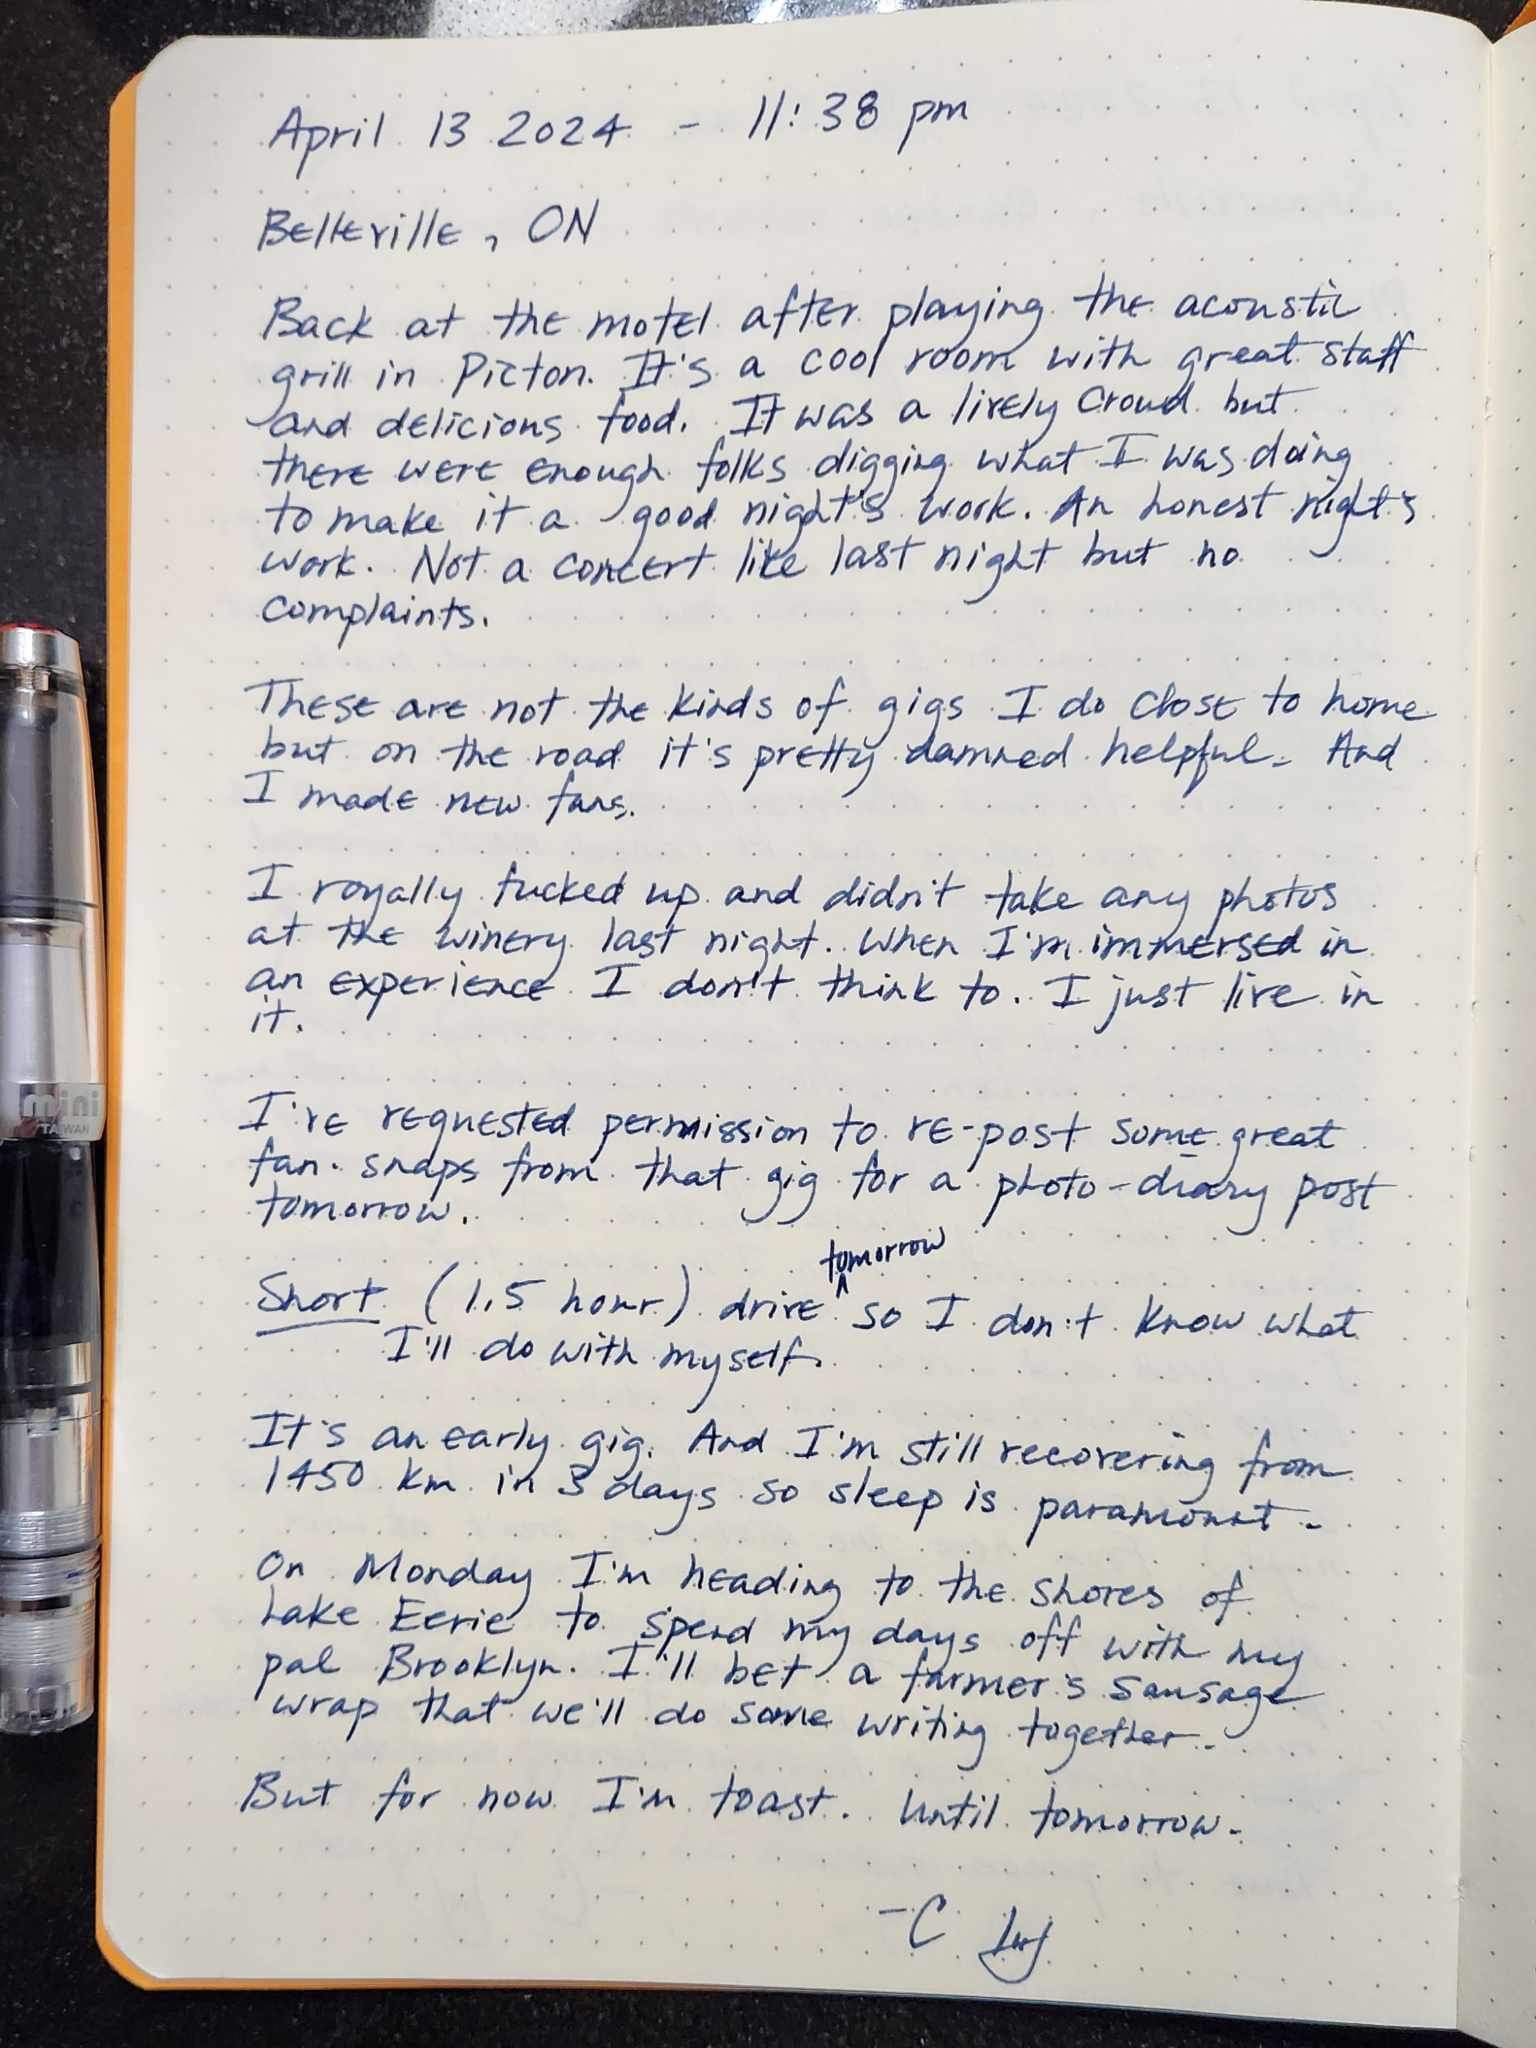 April 13 2024 - 11:38 pm
Belleville, ON
Back at the motel after playing the acoustic
grill in Picton. It's a cool room with great staff
and delicious food. It was a lively crowd but
there were enough folks digging what I was doing
to make it a good night's work. An honest night's
work. Not a concert like last night but no
complaints.
These are not the kinds of gigs I do close to home
but on the road it's pretty damned helpful. And
I made new fans.
I royally fucked up and didn't take any photos
at the winery last night. When I'm immersed in
an experience I don't think to. I just live in
it.
I've requested permission to re-post some great
fan snaps from that gig for a photo-diary post
tomorrow.
tomorrow
Short (1.5 hour) drive ^ so I don't know what
I'll do with myself.
It's an early gig. And I'm still recovering from
1450 km in 3 days so sleep is paramount.
On Monday I'm heading to the shores of
Lake Eerie to spend my days off with my
pal Brooklyn. I'll bet a farmer's sausage
wrap that we'll do some writing together.
But for now I'm toast. Until tomorrow.
- C
mini
TAIWAN